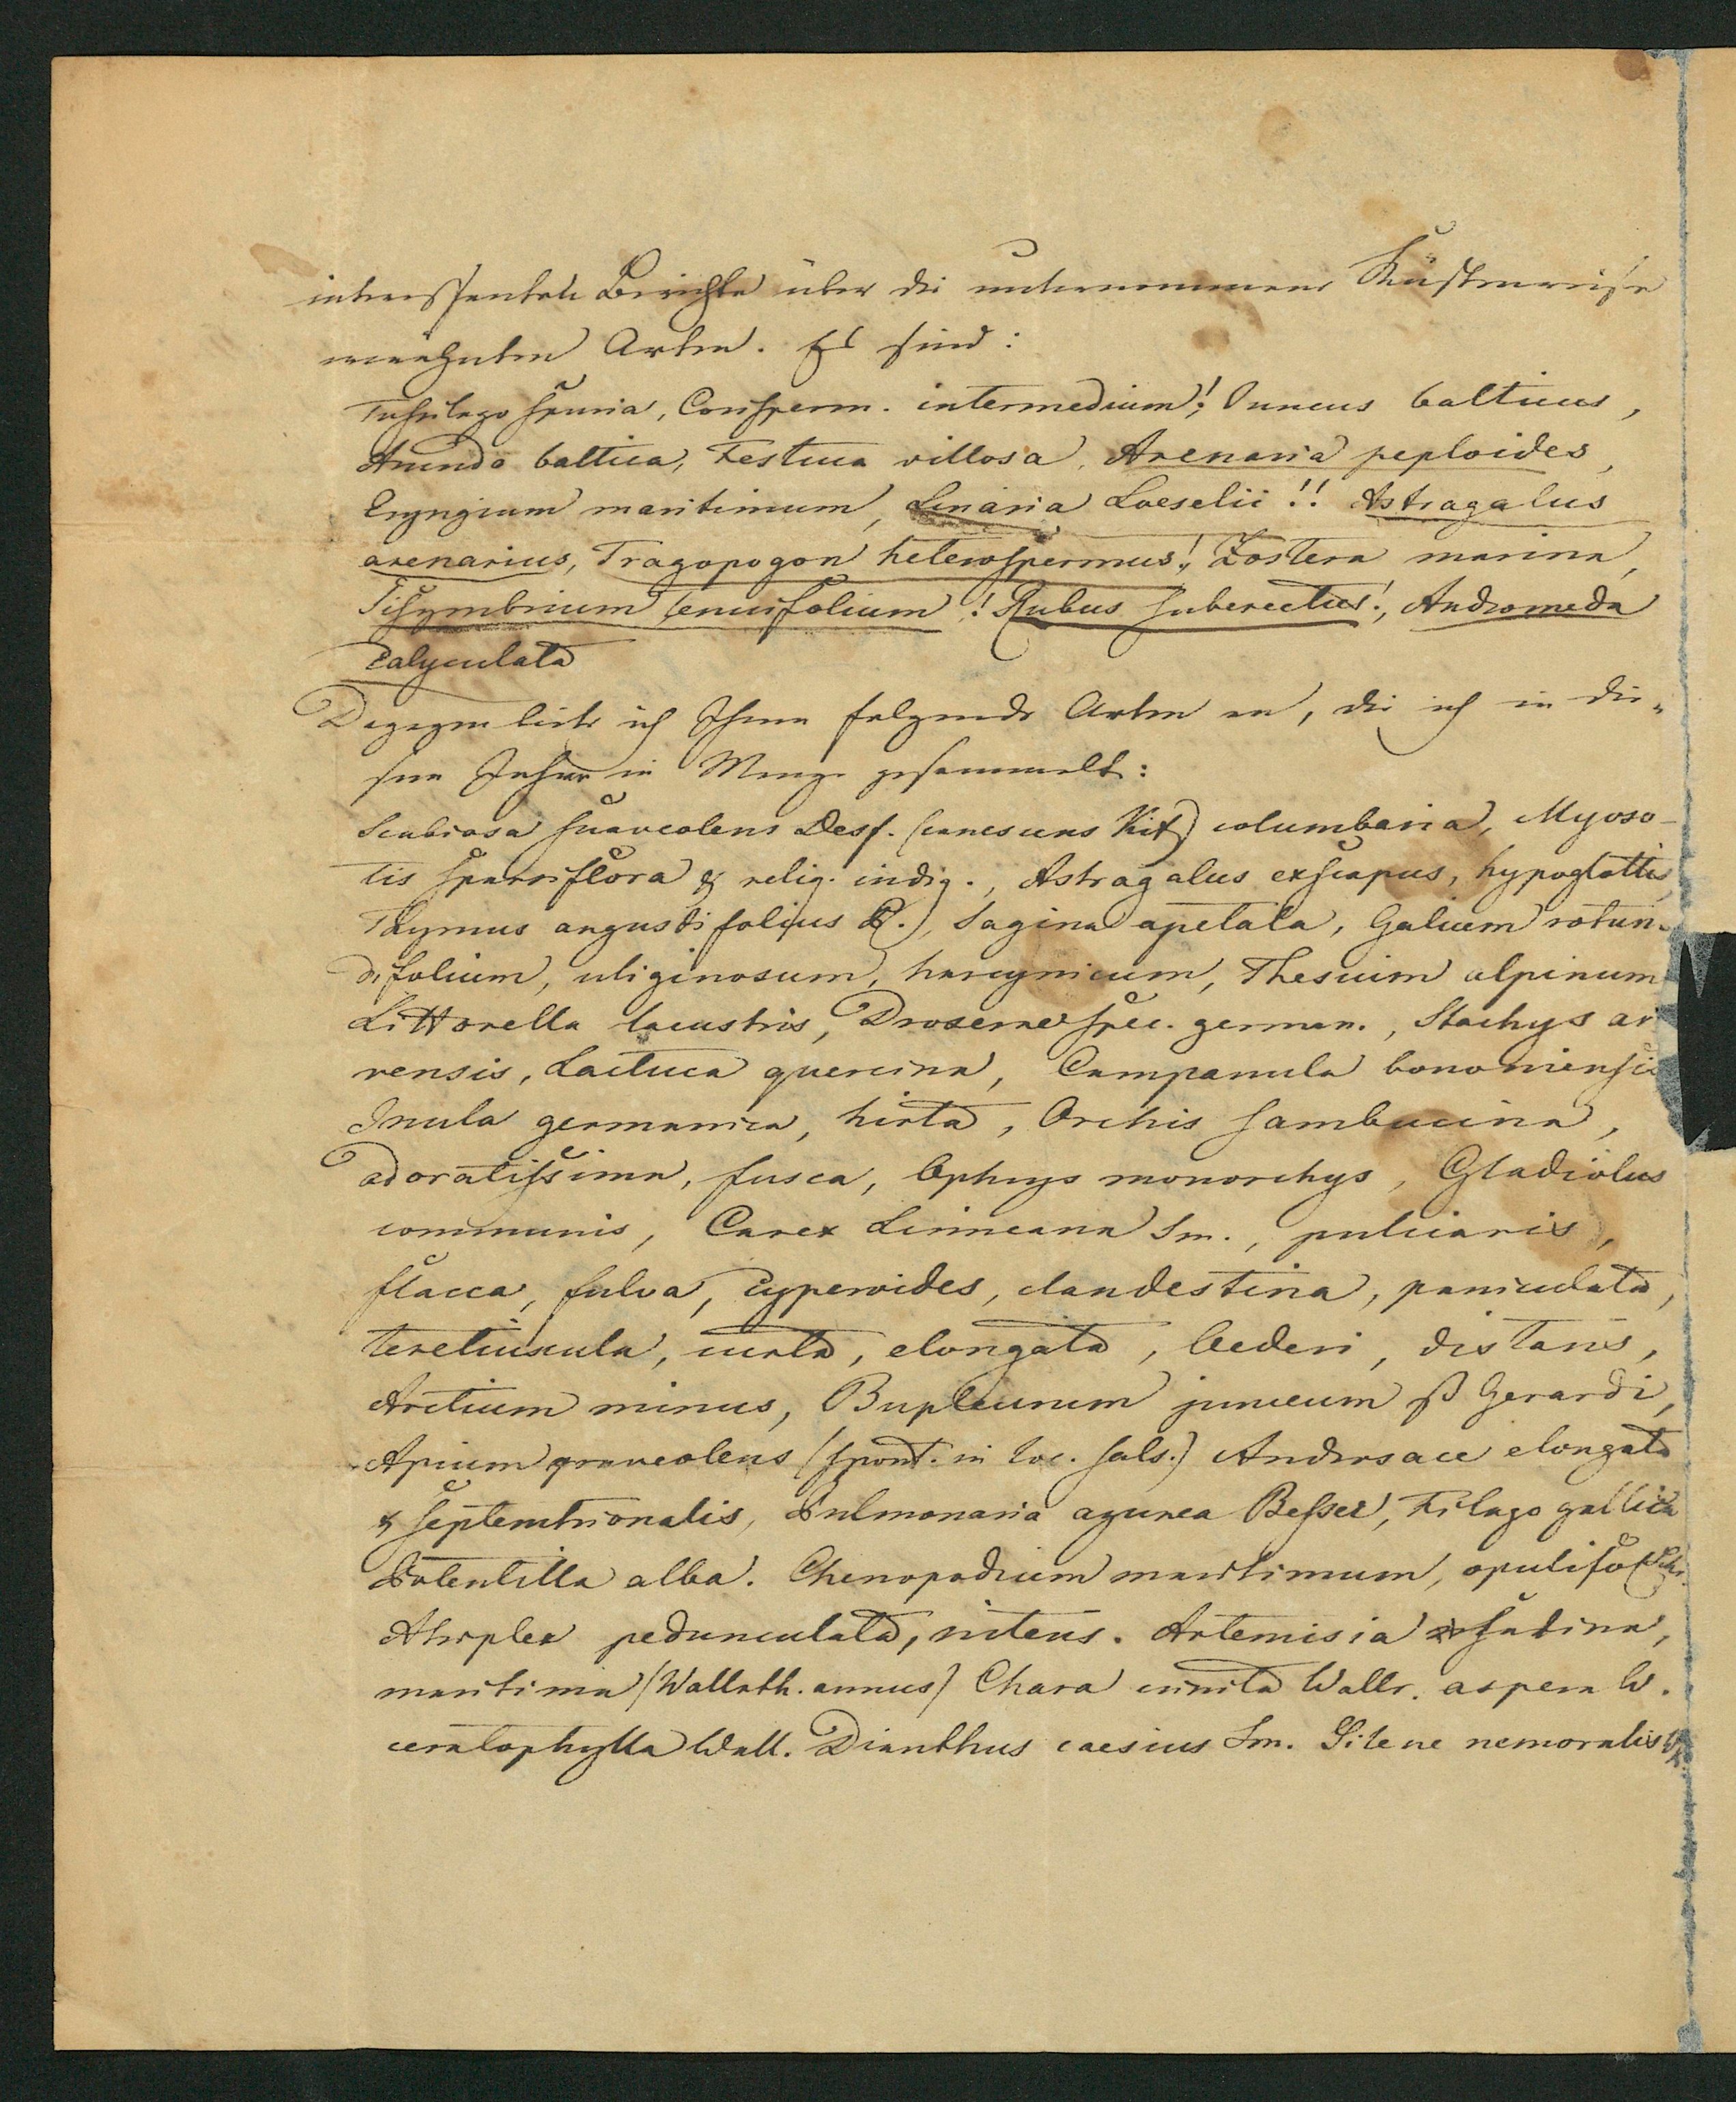 interessanten Berichte über die unternommene Küstenreise
erwähnten Arten. Es sind:
Tussilago spuria, Corisperm. intermedium!, Juncus balticus,
Arundo baltica, Festuca villosa, Arenaria peploides,
Eryngium maritimum, Linaria Loeselii!! Astragalus
arenarius, Tragopogon heterospermus!, Zostera marina,
Sisymbrium tenuifolium! Rubus suberectus!, Andromeda
calyculata
Dagegen biete ich Ihnen folgende Arten an, die ich in die-
sem Jahre in Menge gesammelt:
Scabiosa suaveolens Desf. (canescens Kit) columbaria, Myoso-
tis sparsiflora & relig. indig., Astragalus exscapus, hypoglottis
Thymus angustifolius, Sagina apetala, Galium rotun-
difolium, uliginosum, hercynicum, Thesium alpinum
Littorella lacustris, Droserae spec. german., Stachys ar
vensis, Lactuca quercina, Campanula bononiensis
Inula germanica, hirta, Orchis sambucina,
odoratissima, fusca, Ophrys monorchys, Gladiolus
communis, Carex Linneana Sm., pulicaris,
flacca, fulva, cyperoides, clandestina, paniculata,
teretiuscula, curta, elongata, Oederi, distans,
Arctium minus, Bupleurum junceum β Gerardi,
Apium graveolens (spont. in loc. sals.) Androsace elongata
& septentrionalis, Pulmonaria azurea Besser, Filago gallica
Potentilla alba. Chenopodium maritimum, opulifol Schr.
Atriplex pedunculata, nitens. Artemisia salina,
maritima (Wallroth. annus) Chara crinita Wallr. aspera W.
ceratophylla Wall. Dianthus caesius Sm. Silene nemoralis